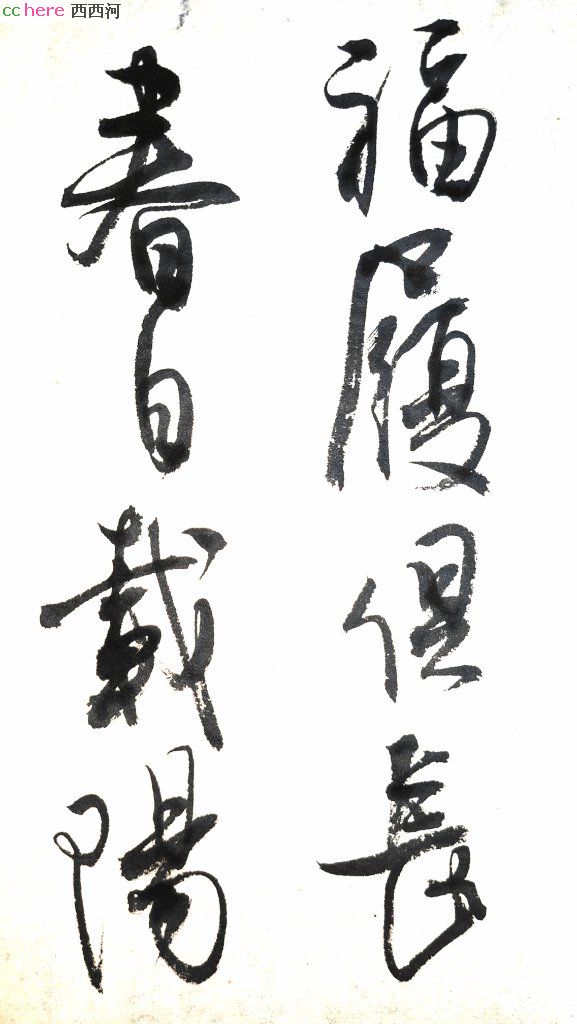 cchere 西西河
福履俱長
春日載陽